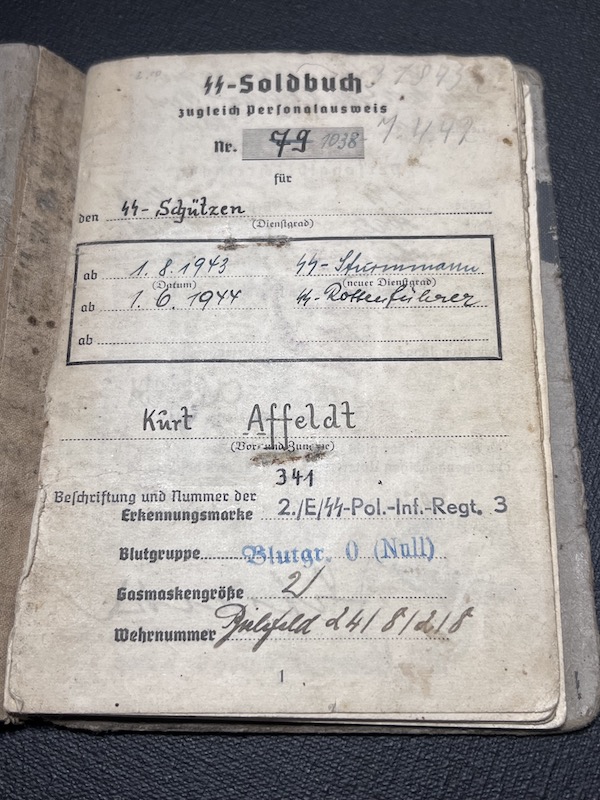 ᛋᛋ-Soldbuch
zugleich Personalausweis
Nr. 79 1038
für
den ᛋᛋ-Schützen
(Dienstgrad)
ab 1.8.1943 ᛋᛋ-Sturmmann
(Datum) (neuer Dienstgrad)
ab 1.6.1944 ᛋᛋ-Rottenführer
ab
Kurt Affeldt
(Vor- und Zuname)
341
Beschriftung und Nummer der
Erkennungsmarke 2./E/ᛋᛋ-Pol.-Inf.-Regt. 3
Blutgruppe Blutgr. 0 (Null)
Gasmaskengröße 2/
Wehrnummer Bielefeld 24/8/2/8
1